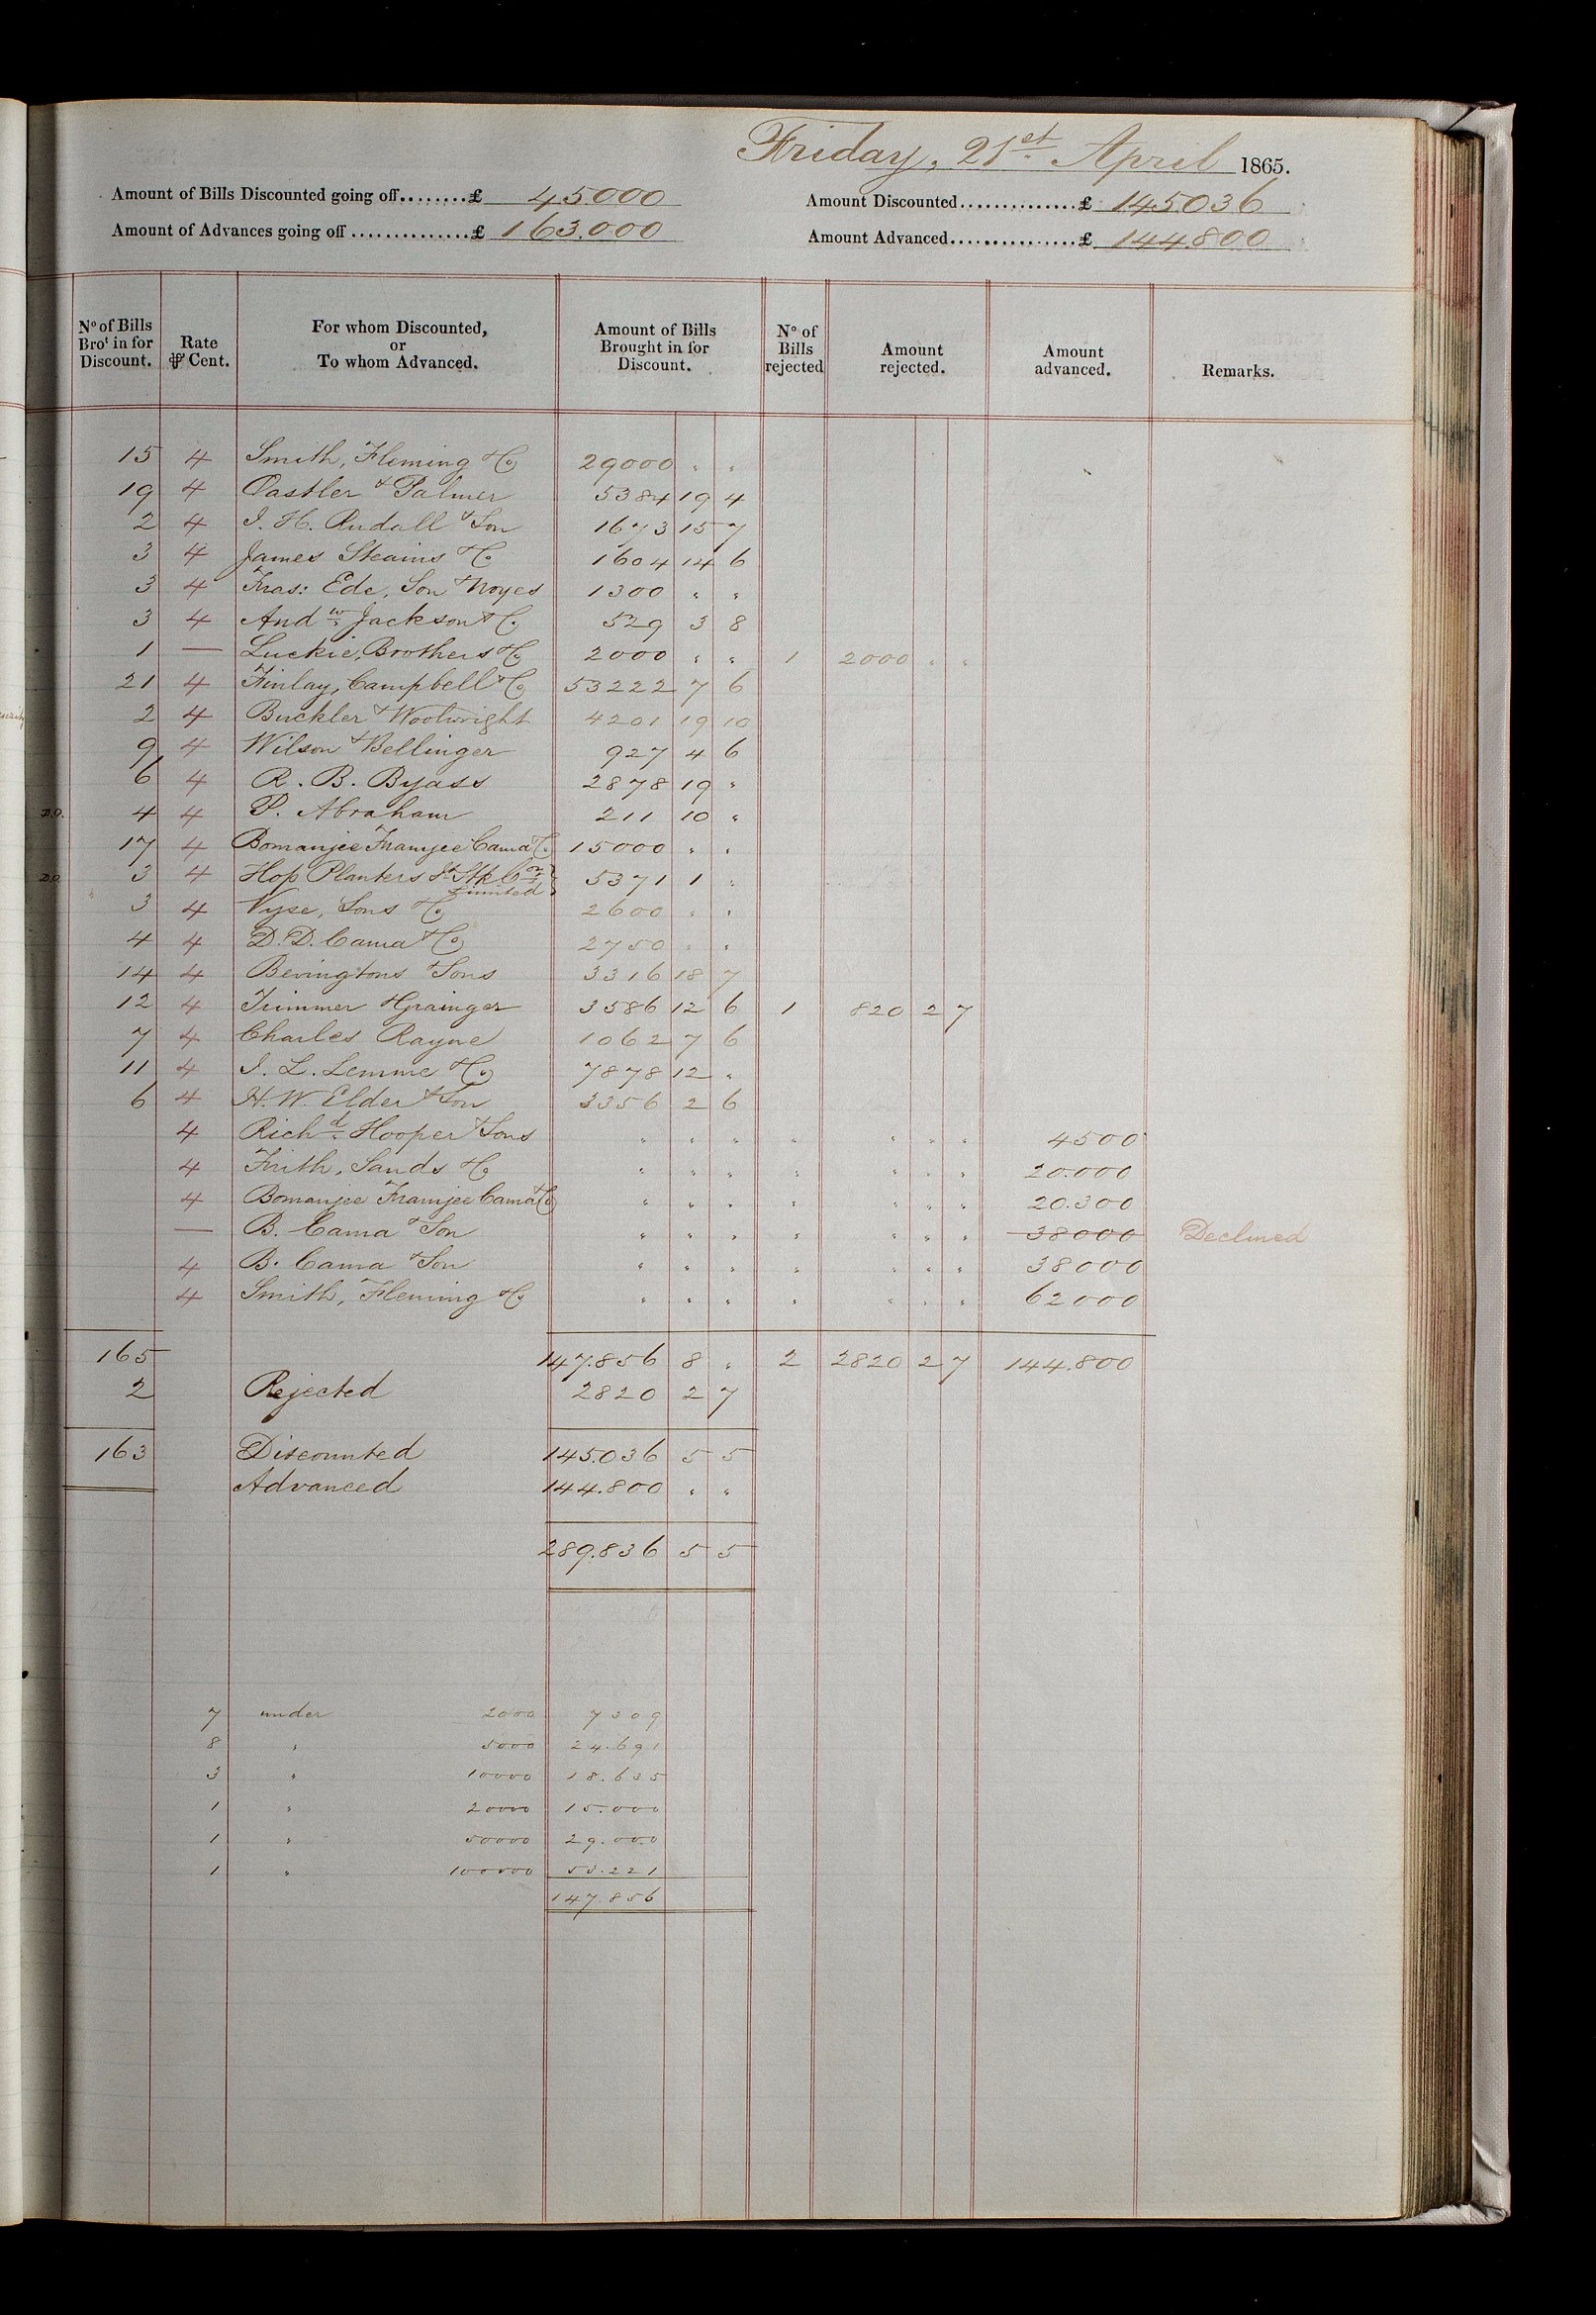 Friday, 21st April 1865.
Amount of Bills Discounted going off........£ 45000 Amount Discounted..............£ 145036
Amount of Advances going off ..............£ 163.000 Amount Advanced...............£ 144.800
No of Bills Brot in for Discount. Rate ⅌ Cent. For whom Discounted, or To whom Advanced. Amount of Bills Brought in for Discount. No of Bills rejected Amount rejected. Amount advanced. Remarks.
15 4 Smith, Fleming & Co 29000 " "
19 4 Castler & Palmer 5384 19 4
2 4 I. H. Rudall & Son 1673 15 7
3 4 James Steains & Co 1604 14 6
3 4 Fras: Ede, Son & Noyes 1300 " "
3 4 Andw Jackson & Co 529 3 8
1 — Luckie, Brothers & Co 2000 " " 1 2000 " "
21 4 Finlay, Campbell & Co 53222 7 6
2 4 Buckler & Woolwright 4201 19 10
9 4 Wilson & Bellinger 927 4 6
6 4 R. B. Byass 2878 19 "
D.O. 4 4 P. Abraham 211 10 "
17 4 Bomanjee Framjee Cama & Co 15000 " "
D.O. 3 4 Hop Planters Jt Stk Coy Limited 5371 1 "
3 4 Vyse, Sons & Co 2600 " "
4 4 D. D. Cama & Co 2750 " "
14 4 Bevingtons & Sons 3316 18 7
12 4 Trimmer & Grainger 3586 12 6 1 820 2 7
7 4 Charles Rayne 1062 7 6
11 4 I. L. Lemme & Co 7878 12 "
6 4 H. W. Elder & Son 3356 2 6
4 Richd Hooper & Sons " " " " " " " 4500
4 Frith, Sands & Co " " " " " " " 20.000
4 Bomanjee Framjee Cama & Co " " " " " " " 20.300
— B. Cama & Son " " " " " " " 38000 Declined
4 B. Cama & Son " " " " " " " 38000
4 Smith, Fleming & Co " " " " " " " 62000
165 147.856 8 " 2 2820 2 7 144.800
2 Rejected 2820 2 7
163 Discounted 145.036 5 5
Advanced 144.800 " "
289.836 5 5
7 under 2000 7309
8 " 5000 24.691
3 " 10000 18.635
1 " 20000 15.000
1 " 50000 29.000
1 " 100000 53.221
147.856